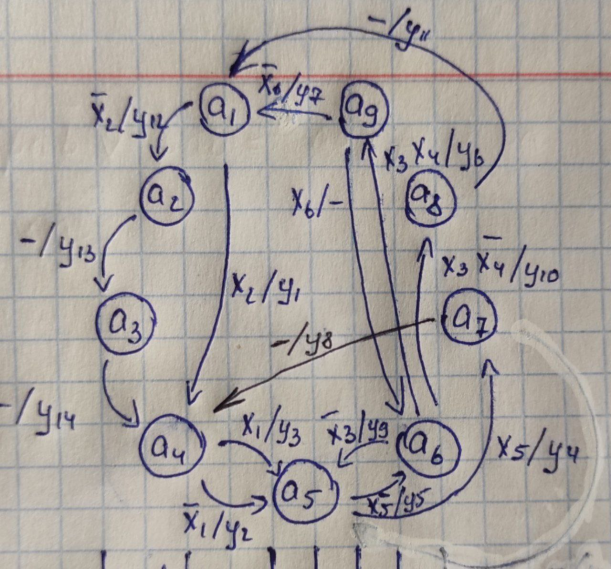 -/y11
x̄6/y7
a1
a9
x̄2/y12
x3 x4/y6
a2
x6/-
a8
-/y13
x2/y1
x3 x̄4/y10
a3
a7
-/y8
-/y14
x1/y3
x̄3/y9
a4
a6
x5/y4
a5
x̄5/y5
x̄1/y2